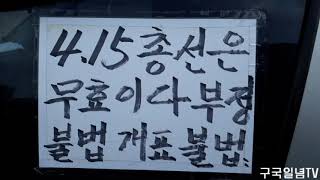 4.15총선은
무효이다부정
불법 개표불법:
구국일념TV